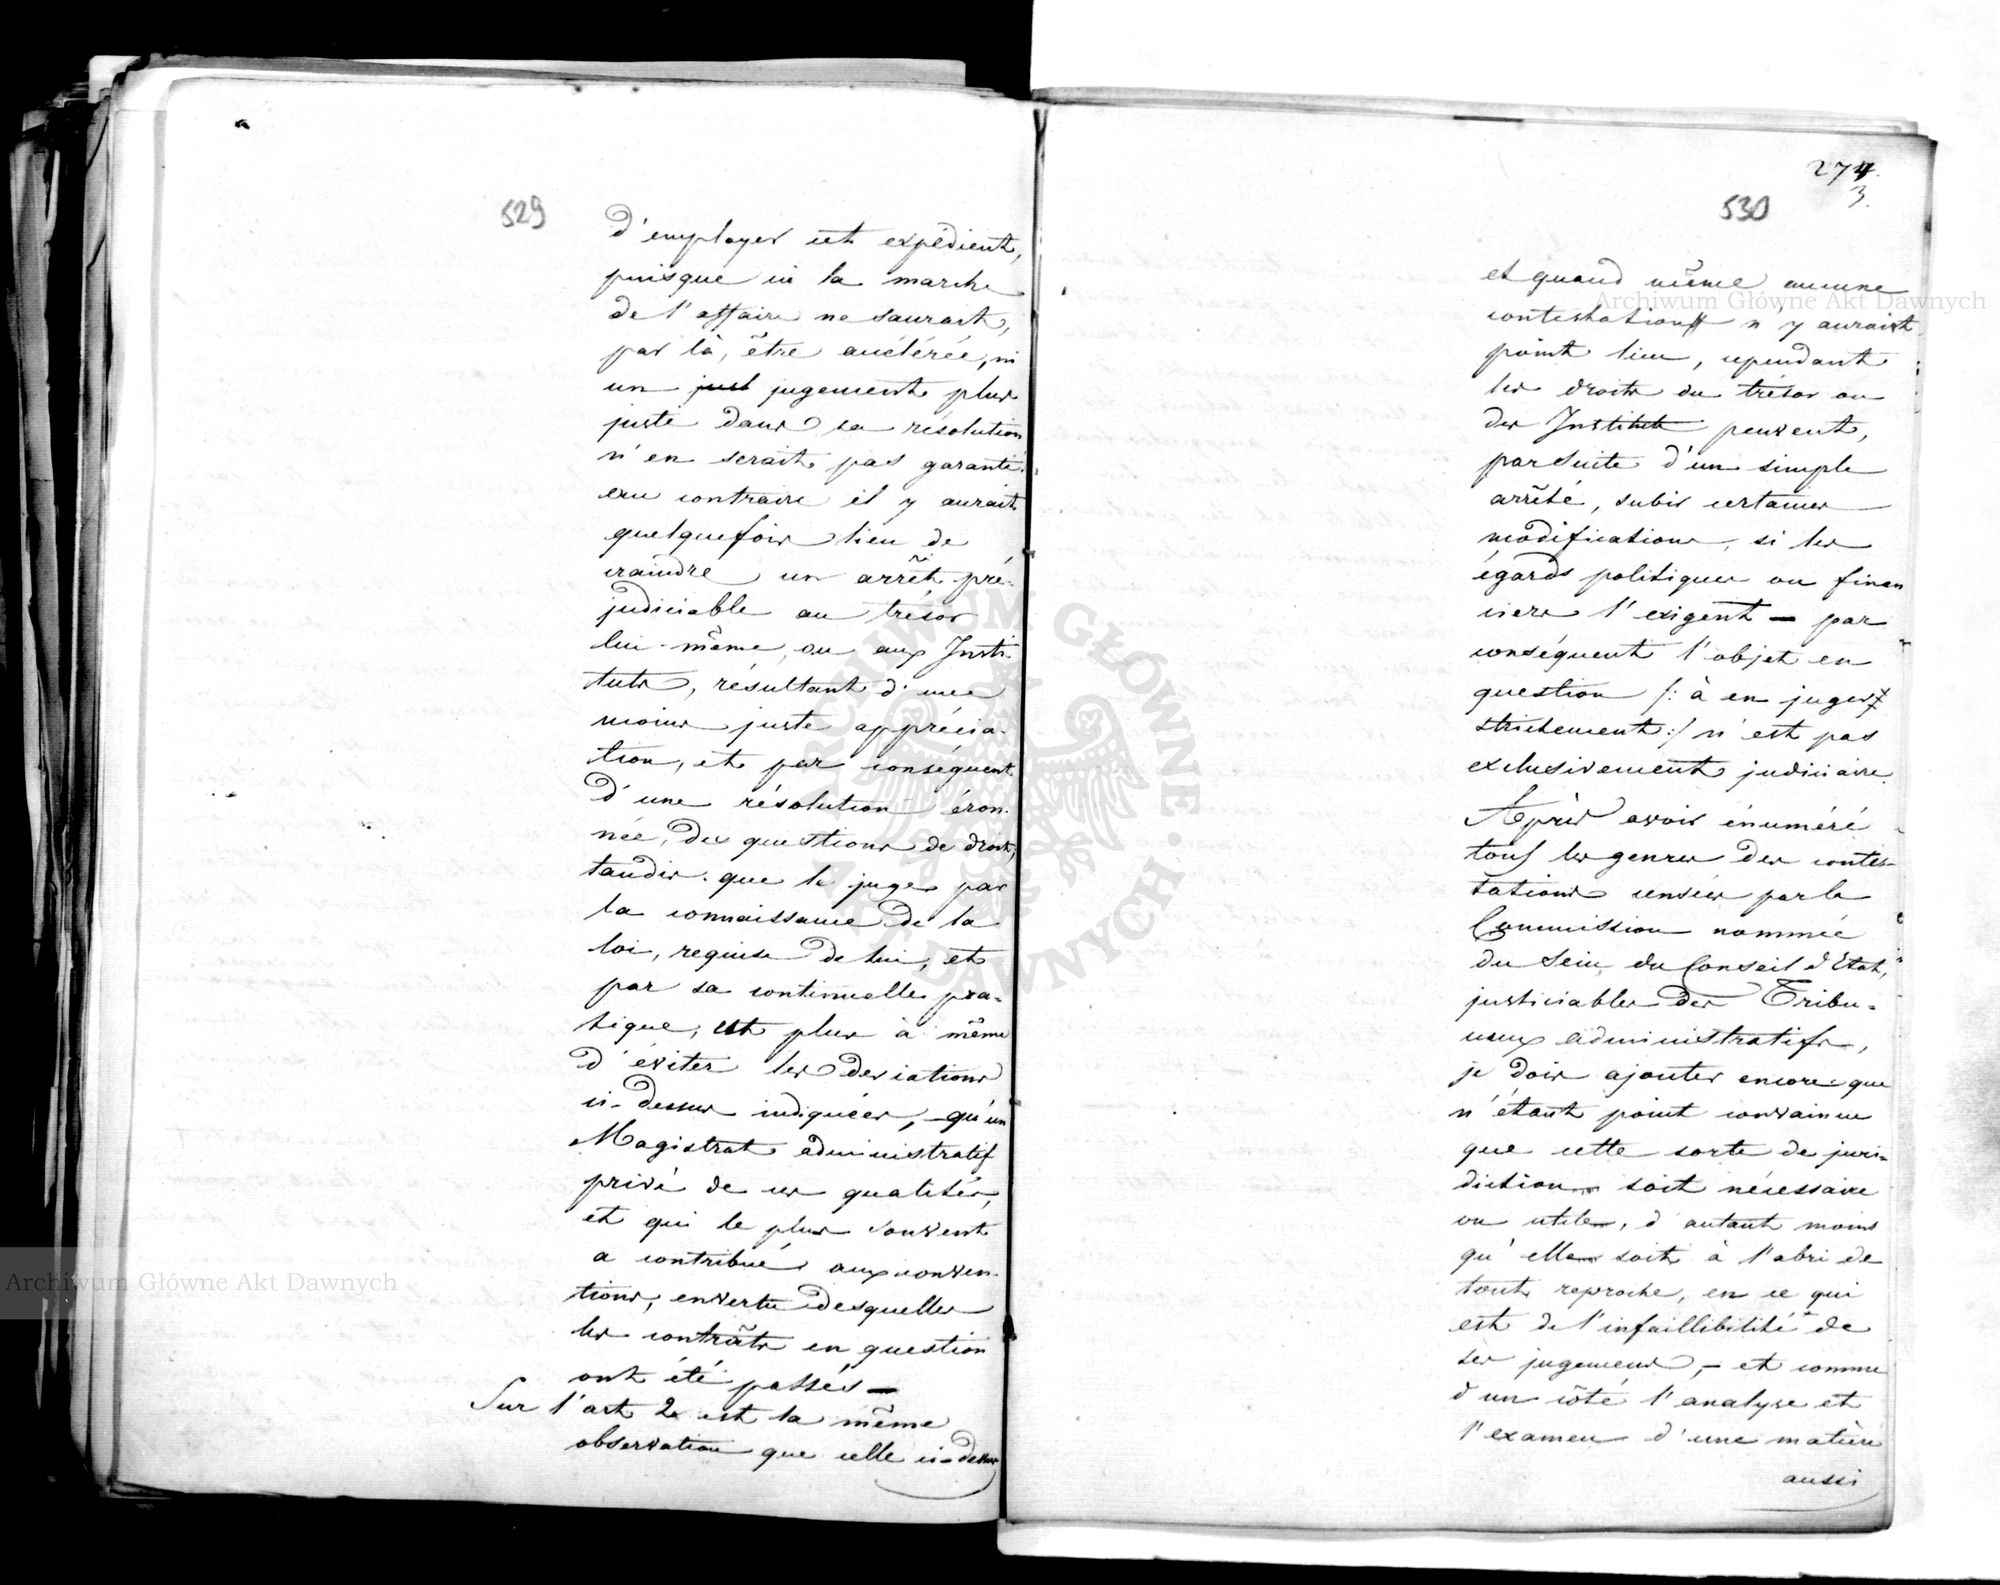 529
d'employer cet expédient,
puisque ici la marche
de l'affaire ne saurait,
par là, être accélérée, ni
un just jugement plus
juste dans sa résolution
n'en serait pas garanti.
au contraire il y aurait
quelquefois lieu de
craindre un arrêt pré-
judiciable au trésor
lui-même, ou aux Insti-
tuts, résultant d'une
moins juste apprécia-
tion, et par conséquent
d'une résolution éron-
née, des questions de droit,
tandis que le juge par
la connaissance de la
loi, requise de lui, et
par sa continuelle pra-
tique, est plus à même
d'éviter les deviations
ci-dessus indiquées, - qu'un
Magistrat administratif
privé de ces qualités,
et qui le plus souvent
a contribué aux conven-
tions, en vertu desquelles
les contrâts en question
ont été passés -
Sur l'art 2 est la même
observation que celle ci-dessus
274.
3.
530
et quand même aucune
contestation n'y aurait
point lieu, cependant
les droits du trésor ou
des Institut peuvent,
par suite d'un simple
arrêté, subir certaines
modifications, si les
égards politiques ou finan
ciers l'exigent - par
conséquent l'objet en
question /: à en juger
strictement :/ n'est pas
exclusivement judiciaire.
Après avoir énuméré
tous les genres des contes-
tations censées par la
Commission nommée
du sein du Conseil d'Etat,
justiciables des Tribu-
naux administratifs,
je dois ajouter encore que
n'étant point convaincu
que cette sorte de juri-
diction soit nécessaire
ou utile, d'autant moins
qu'elle soit à l'abri de
tout reproche, en ce qui
est de l'infaillibilité de
ses jugemens, - et comme
d'un côté l'analyse et
l'examen d'une matière
aussi
Archiwum Główne Akt Dawnych
Archiwum Główne Akt Dawnych
ARCHIWUM GŁÓWNE AKT DAWNYCH